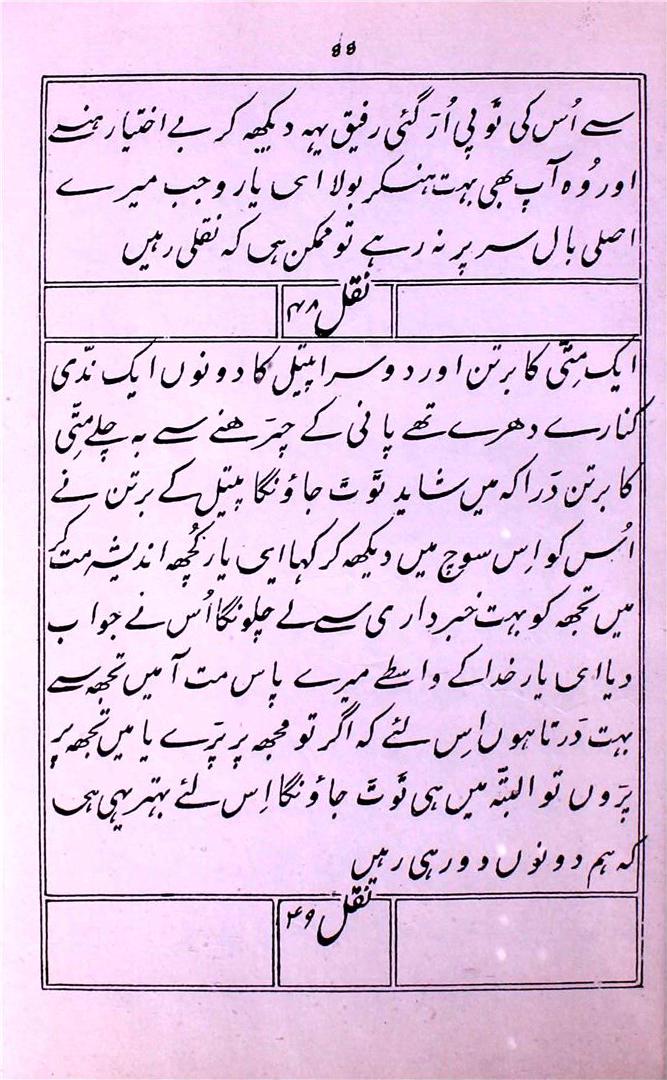 ۴۴
سے اُس کی تَوپی اُرَ گئی رفیق یہہ دیکھہ کر بے اختیار ہنسے
اور وُہ آپ بھی بہت ہنسکر بولا ای یارو جب میرے
اصلی بال سر پر نہ رہے تو ممکن ہی کہ نقلی رہیں
نقل ۴۸
ایک مِتَّی کا برتن اور دوسرا پیتل کا دونوں ایک ندّی
کنارے دھرے تھے پانی کے چرَھنے سے بہ چلے متَّی
کا برتن دَرا کہ میں شاید تَوتَ جاؤنگا پیتل کے برتن نے
اُس کو اِس سوچ میں دیکھہ کر کہا ای یار کُچھہ اندیشہ مت کر
میں تجھہ کو بہت خبرداری سے لے چلونگا اُس نے جواب
دیا ای یار خدا کے واسطے میرے پاس مت آ میں تجھہ سے
بہت دَرتا ہوں اِس لئے کہ اگر تو مجھہ پر پرَے یا میں تجھہ پر
پرَوں تو البتّہ میں ہی تَوتَ جاؤنگا اِس لئے بہتر یہی ہی
کہ ہم دونوں دور ہی رہیں
نقل ۴۹